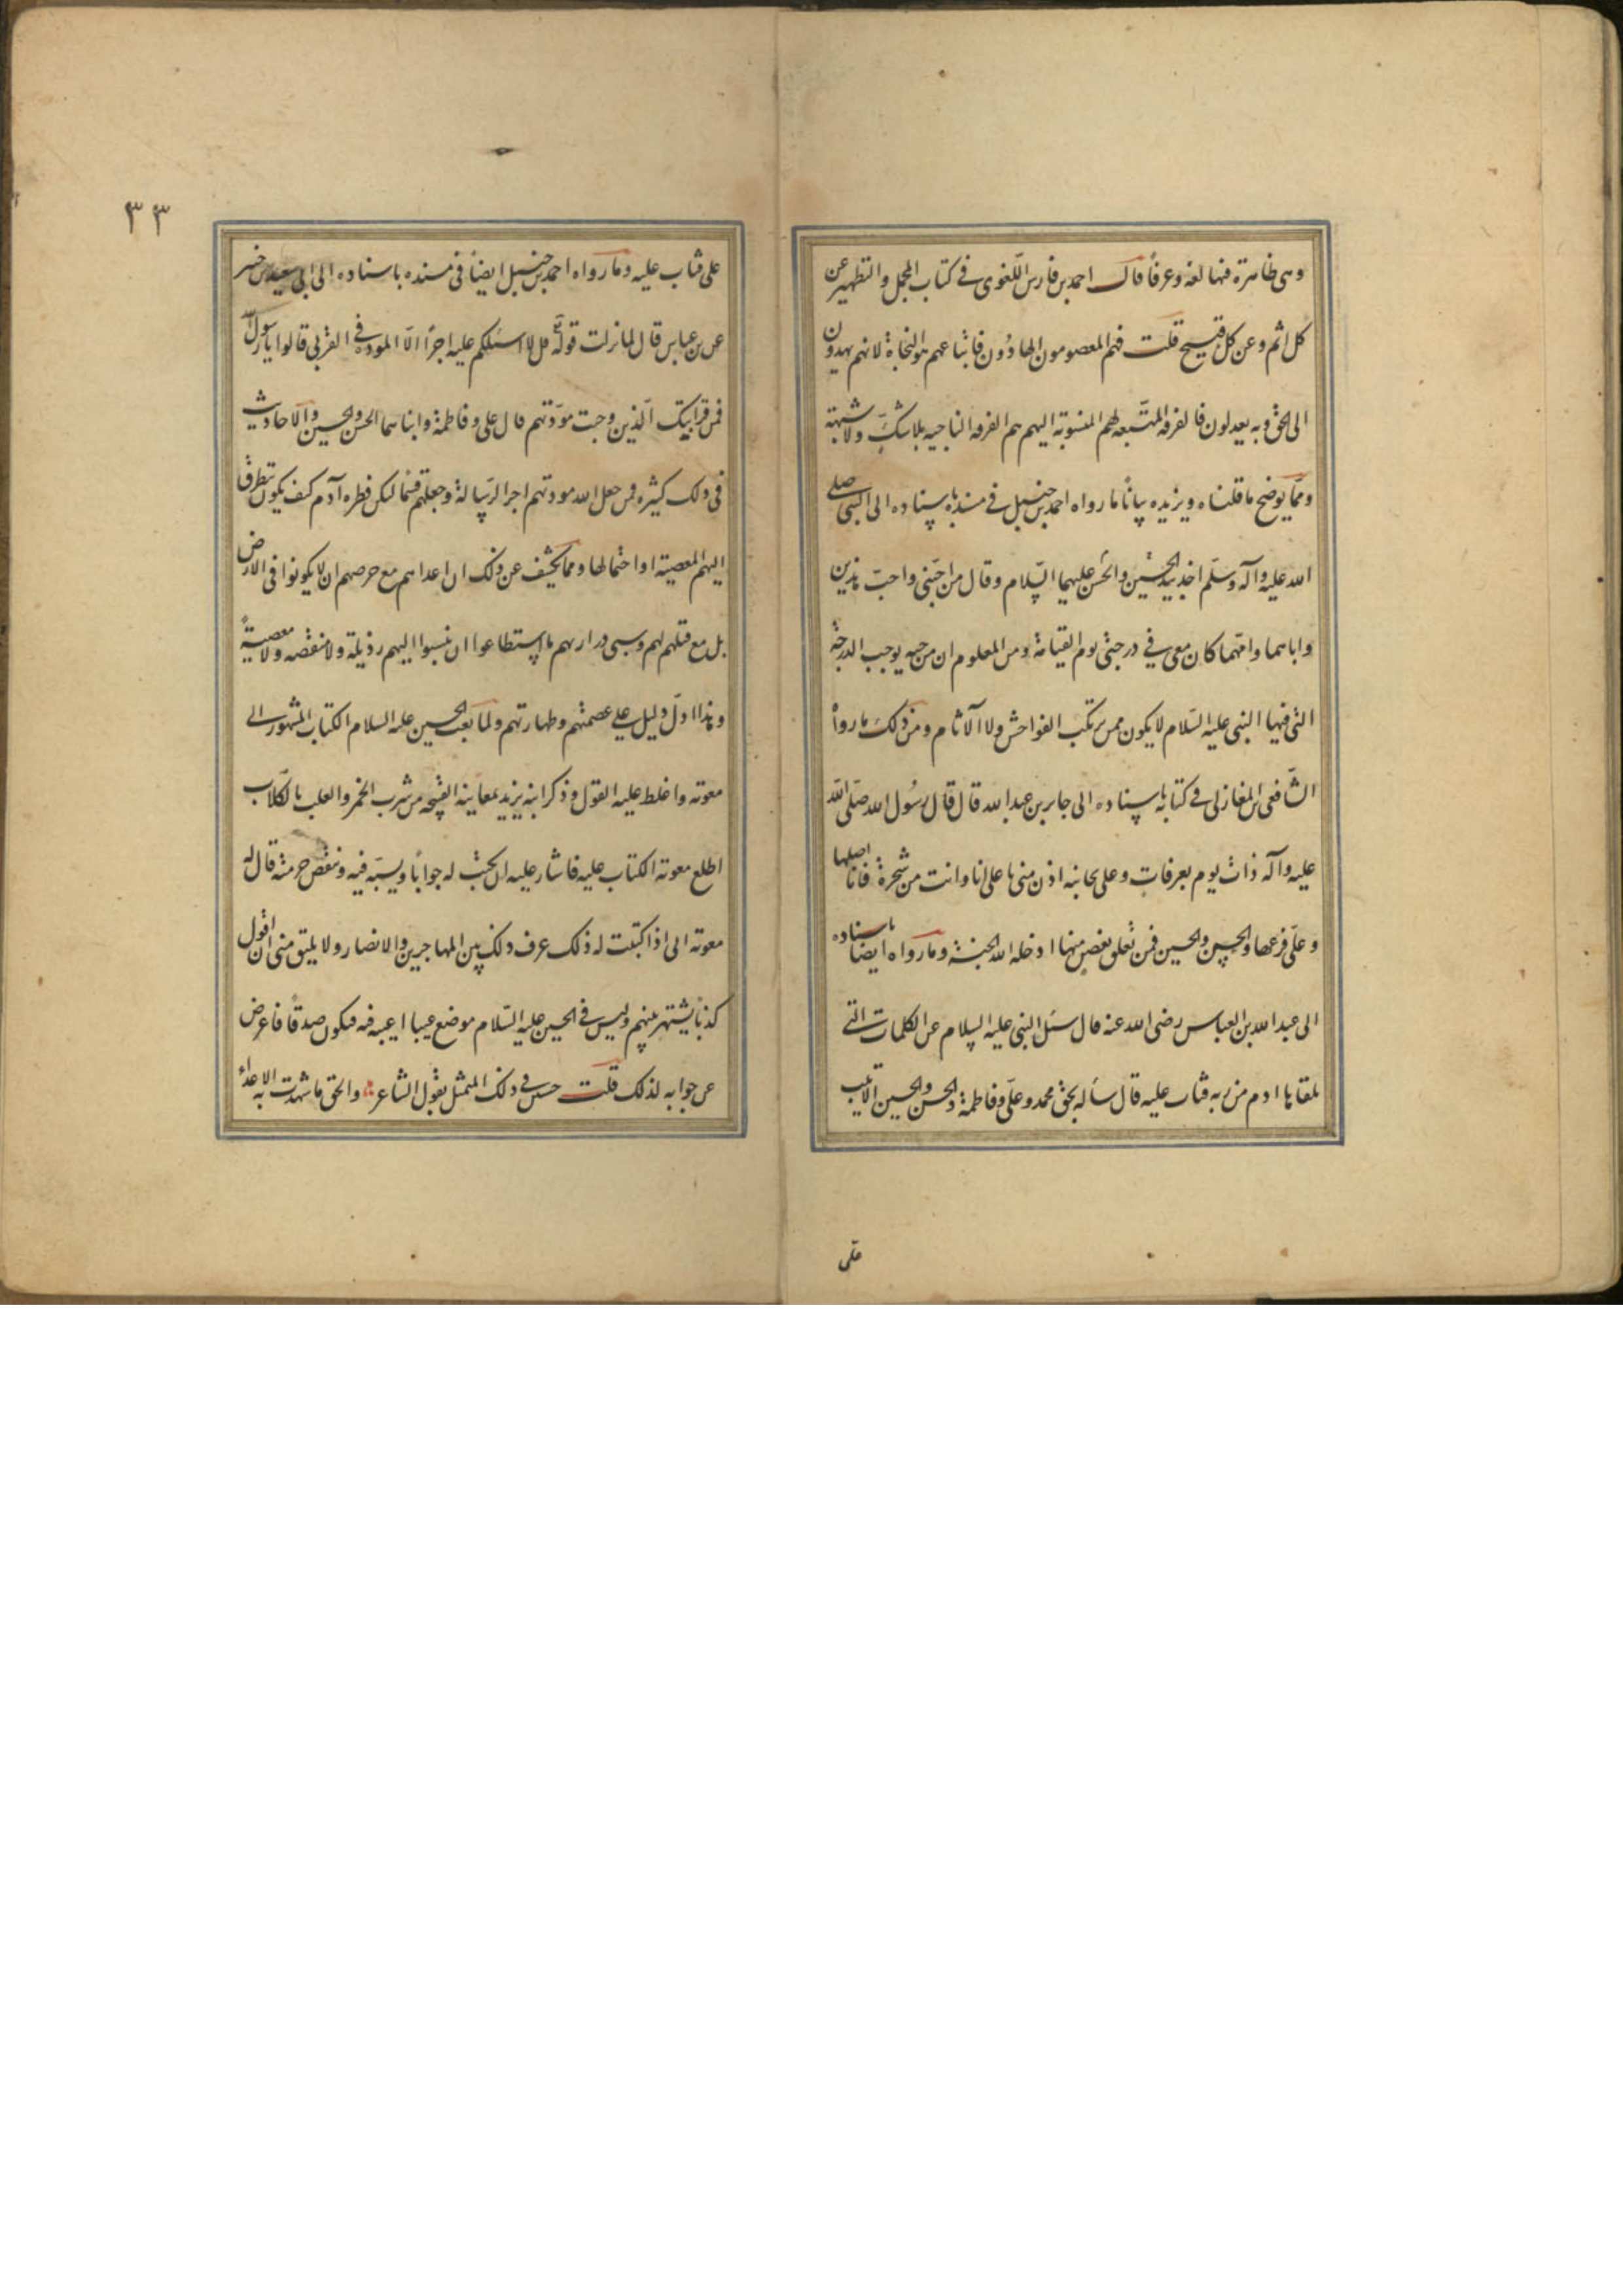 وهى ظاهرة فيها لغة وعرفاً قال احمد بن فارس اللّغوى فى كتاب المجمل والتطهير عن
كل اثم وعن كل قبيح قلت فهم المعصومون الهادُون فاتباعهم هو النجاة لانهم يهدون
الى الحق وبه يعدلون فالفرقه المتّبعه لهم المنسوبة اليهم هم الفرقه الناجيه بلا شكّ ولا شبهة
وممّا يوضح ما قلناه ويزيده بياناً ما رواه احمد بن حنبل فى مسنده باسناده الى النبى صلى
الله عليه وآله وسلّم اخذ بيد الحسين والحسن عليهما السّلام وقال من احبّنى واحبّ هذين
واباهما وامّهما كان معى فى درجتى يوم القيامة ومن المعلوم ان من حبه يوجب الدرجة
التى فيها النبى عليه السّلام لا يكون ممن يرتكب الفواحش ولا الآثام ومن ذلك ما رواه
الشّافعى ابن المغازلى فى كتابه باسناده الى جابر بن عبد الله قال قال رسُول الله صلّى الله
عليه وآله ذات يوم بعرفات وعلى تجاهه اذن منى يا على انا وانت من شجرة فانا اصلها
وعلىّ فرعها والحسن والحسين فمن تعلق بغصن منها ادخله الله الجنة وما رواه ايضا باسناده
الى عبد الله بن العباس رضى الله عنه قال سئل النبى عليه السلام عن الكلمات التى
تلقاها ادم من ربه فتاب عليه قال سأله بحق محمد وعلىّ وفاطمة والحسن والحسين الا تبت
على
٣٣
على فتاب عليه وما رواه احمد بن حنبل ايضاً فى مسنده باسناده الى ابى سعيد بن جبير
عن بن عباس قال لما نزلت قوله قل لا اسئلكم عليه اجراً الّا المودة فى القربى قالوا يا رسول الله
فمن قرابتك الّذين وجبت مودّتهم قال على وفاطمة وابناهما الحسن والحسين والاحاديث
فى ذلك كثيره فمن جعل الله مودتهم اجر الرّسالة وجعلهم قسما آدم كيف يكون تتطرق
اليهم المعصية او احتمالها ومما يكشف عن ذلك ان اعداءهم مع حرصهم ان لا يكونوا فى الارض
بل مع قتلهم لهم وسبى ذراريهم ما استطاعوا ان ينسبوا اليهم رذيلة ولا منقصه ولا معصيةً
وهذا ادلّ دليل على عصمتهم وطهارتهم ولما بعث الحسين عليه السلام الكتاب المشهور الى
معوية واغلظ عليه القول وذكر ابنه يزيد بمعاينه القبيحه من شرب الخمر واللعب بالكلاب
اطلع معوية الكتاب عليه فاشار عليه ان يكتب له جواباً ويسبّه فيه وينقص حرمته قال له
معوية انى اذا كتبت له ذلك عرف ذلك بين المهاجرين والانصار ولا يليق منى ان اقول
كذباً يشتهر بينهم وليس فى الحسين عليه السّلام موضع عيبا اعيبه فيه فيكون صدقاً فاعرض
عن جوابه لذلك قلت حسن فى ذلك التمثل بقول الشاعر والحق ما شهدت به الاعداء